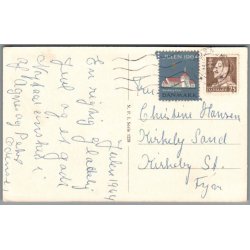 JULEN 1964
DANMARK
DANMARK 25
Julen 1964
En rigtig
glædelig
Jul og et godt
Nytår ønskes
af Agnes og Peter
Odense
Christine Hansen
Kirkeby Sand
Kirkeby St.
Fyn